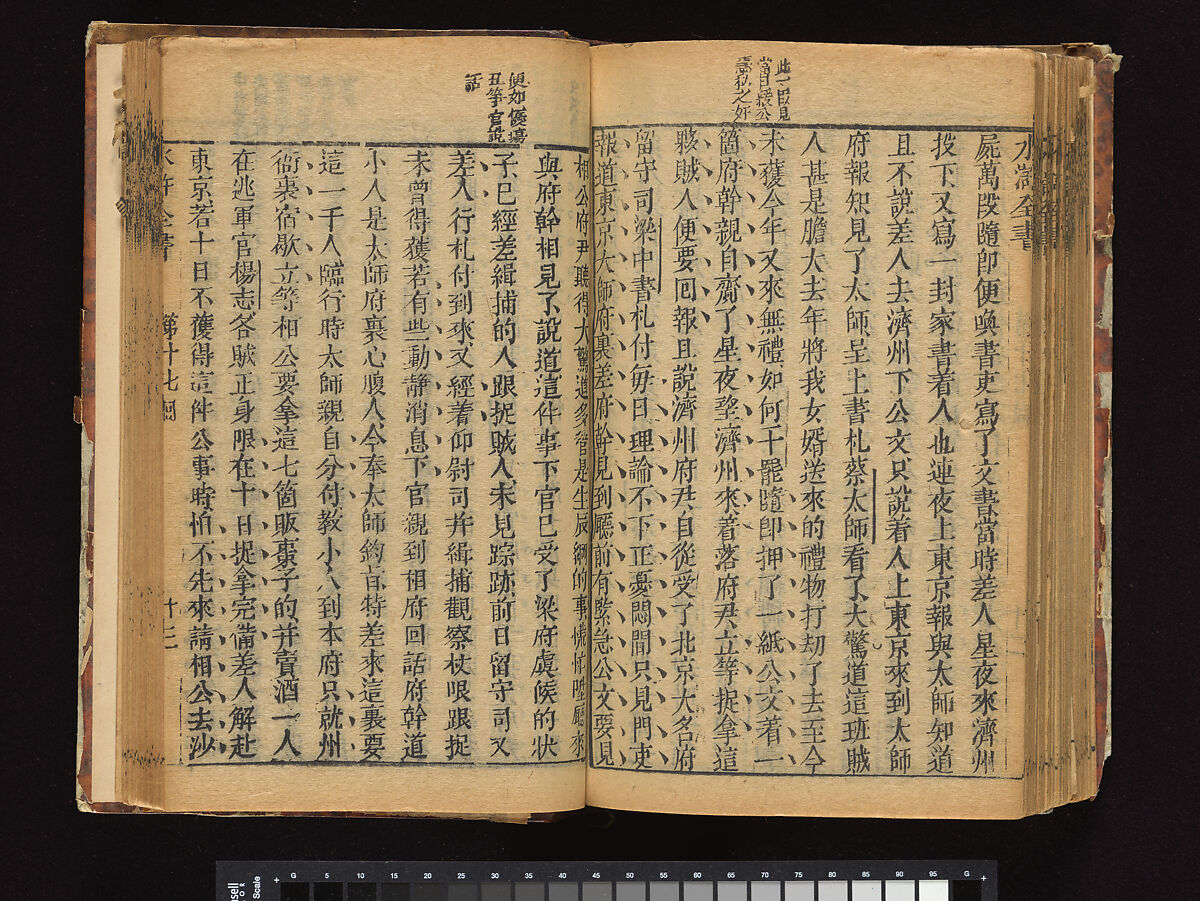 水滸全書
屍萬段隨卽便喚書吏寫了文書當時差人星夜來濟州
投下又寫一封家書着人也連夜上東京報與太師知道
且不說差人去濟州下公文只說着人上東京來到太師
府報知見了太師呈上書札蔡太師看了大驚道這班賊
人甚是膽大去年將我女婿送來的禮物打劫了去至今
未獲今年又來無禮如何干罷隨卽押了一紙公文着一
箇府幹親自齎了星夜望濟州來着落府尹立等捉拿這
夥賊人便要回報且說濟州府尹自從受了北京大名府
留守司梁中書札付每日理論不下正憂悶間只見門吏
報道東京太師府裏差府幹見到廳前有緊急公文要見
當日蔡公
相公府尹聽得大驚道多管是生辰綱的事慌忙陞廳來
與府幹相見了說道這件事下官已受了梁府虞候的狀
子已經差緝捕的人跟捉賊人未見踪跡前日留守司又
差人行札付到來又經着仰尉司并緝捕觀察杖限跟捉
未曾得獲若有些動靜消息下官親到相府回話府幹道
小人是太師府裏心腹人今奉太師鈞旨特差來這裏要
這一干人臨行時太師親自分付教小人到本府只就州
衙裏宿歇立等相公要拿這七箇販棗子的并賣酒一人
在逃軍官楊志各賊正身限在十日捉拿完備差人解赴
東京若十日不獲得這件公事時怕不先來請相公去沙
丑等官說
話
水滸全書 第十七回 十二
Scale
G 5 10 15 20 25 30 35 40 45 50 55 60 65 70 75 80 85 90 95 G